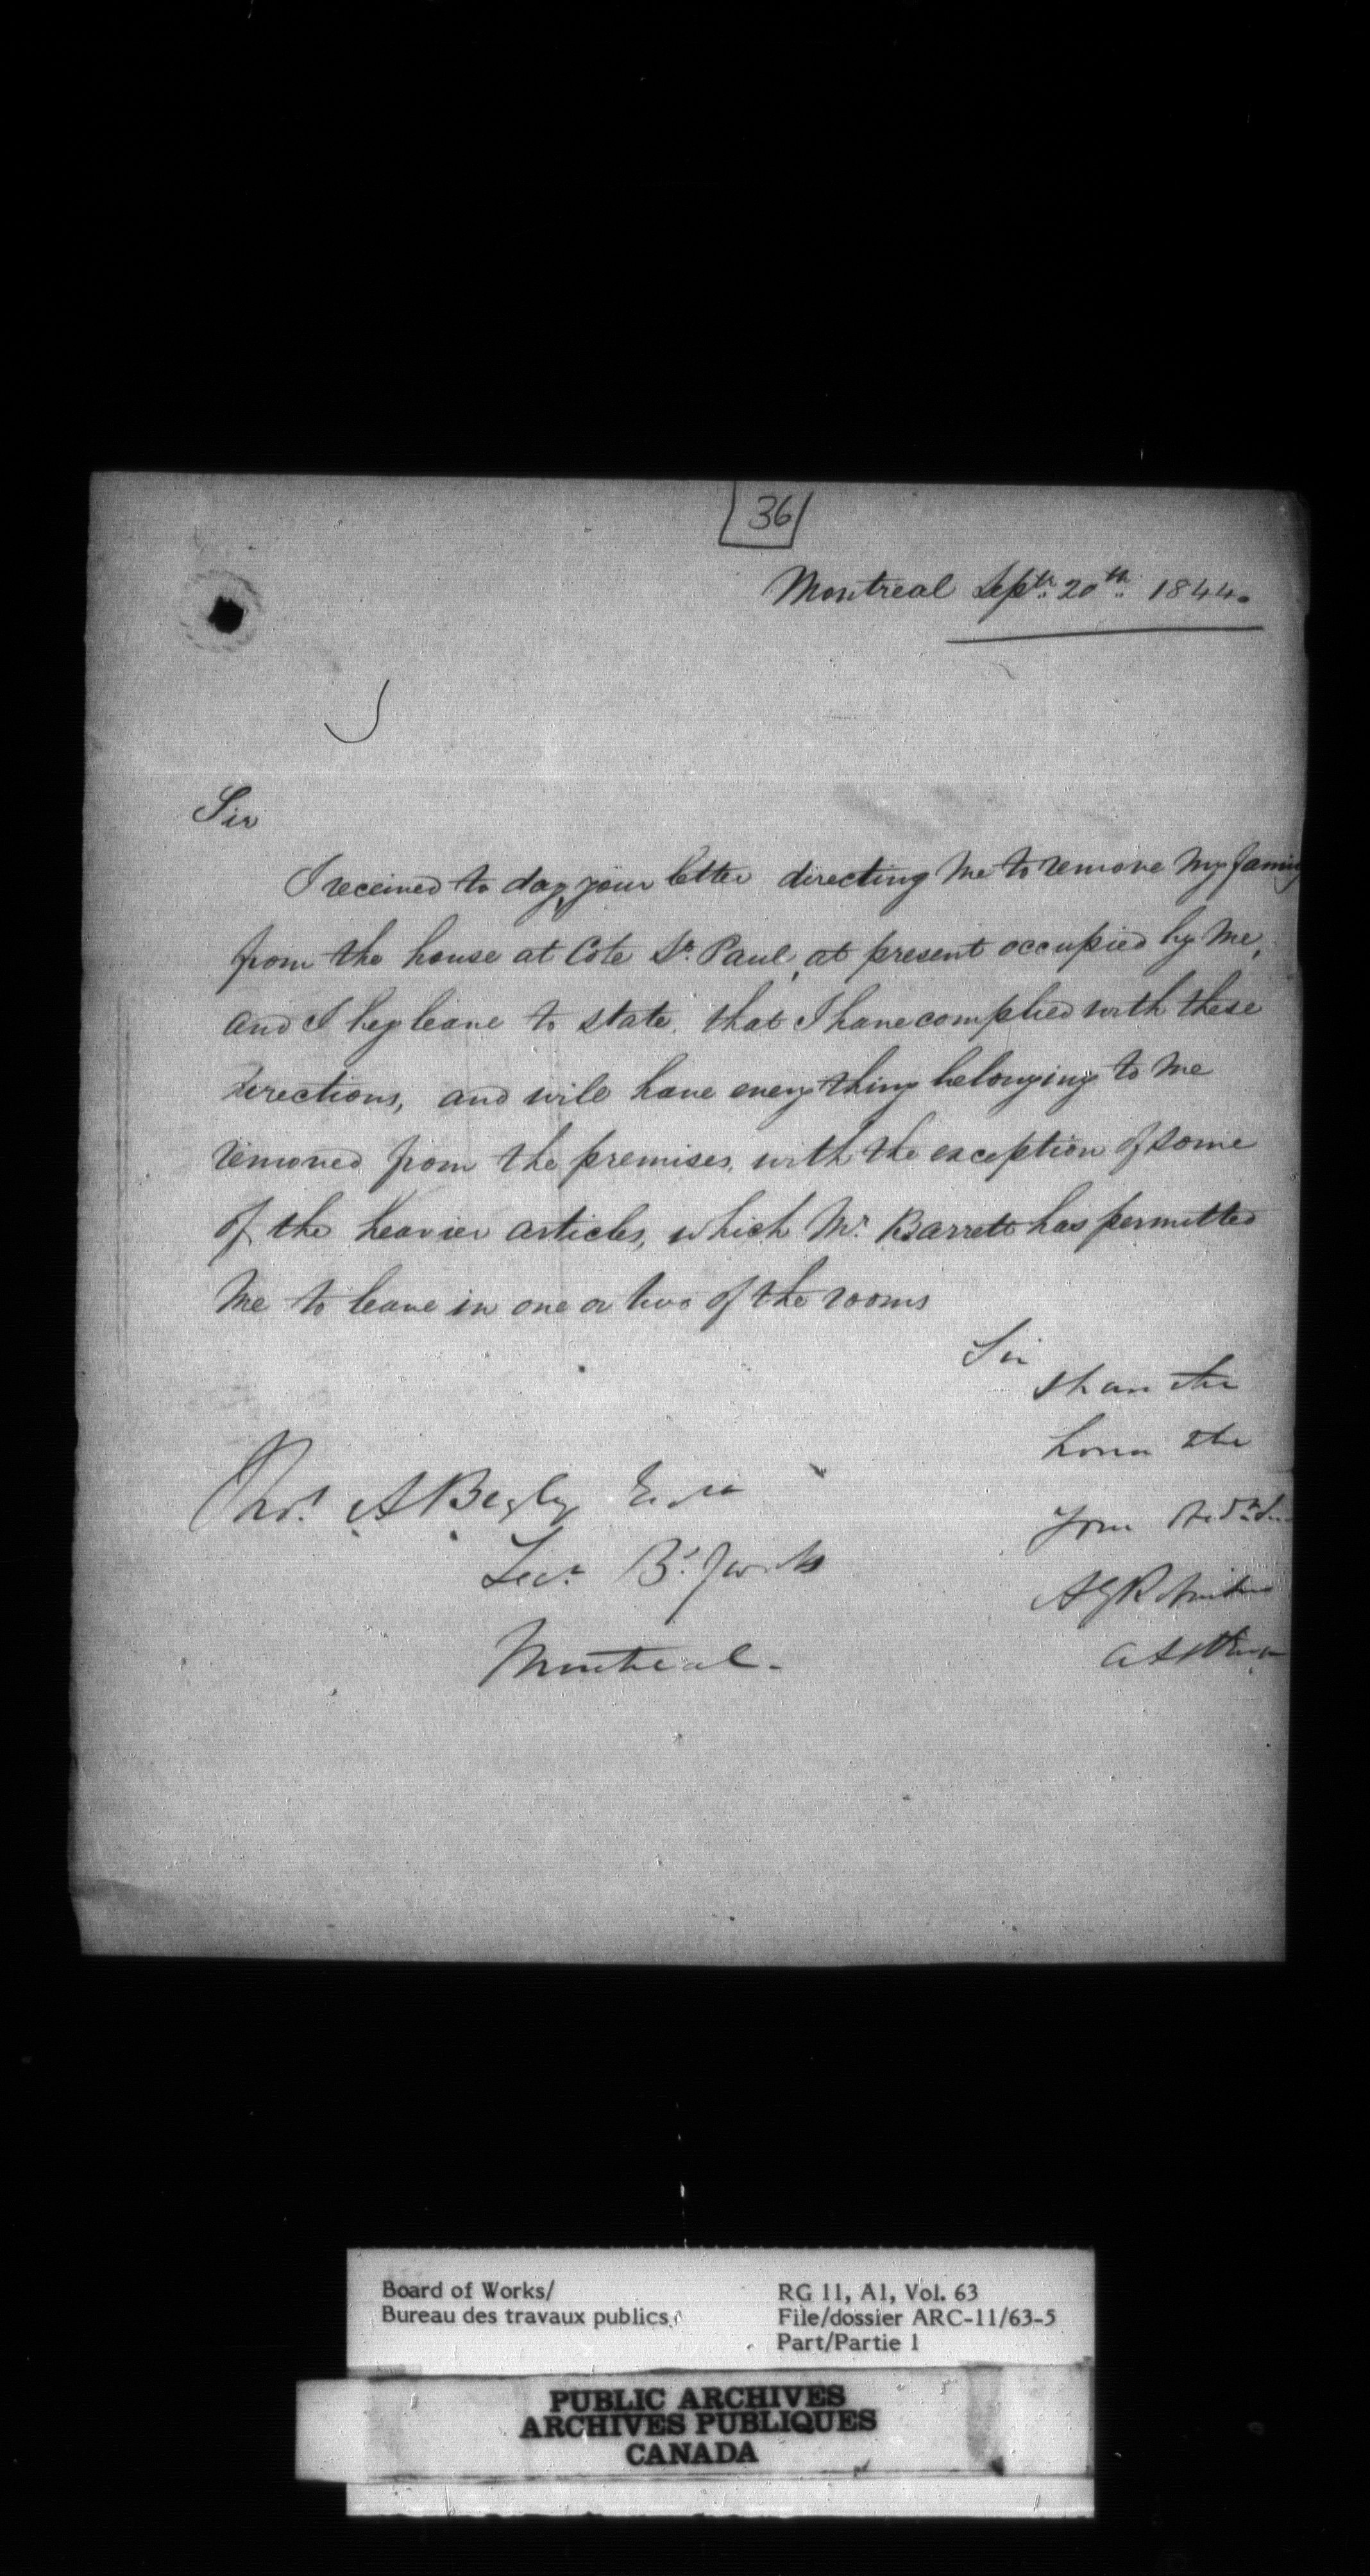 36
Montreal Sept. 20th. 1844.
Sir
I received to day, your letter directing me to remove my family
from the house at Cote St. Paul, at present occupied by me,
and I beg leave to state, that I have complied with these
directions, and will have every thing belonging to me
removed from the premises, with the exception of some
of the heavier articles, which Mr. Barrett has permitted
me to leave in one or two of the rooms
Sir
I have the
honor to be
Your
Thos. A Begly Esqr
Secy. Bd. Works
Montreal.
Board of Works/
Bureau des travaux publics
RG 11, A1, Vol. 63
File/dossier ARC-11/63-5
Part/Partie 1
PUBLIC ARCHIVES
ARCHIVES PUBLIQUES
CANADA